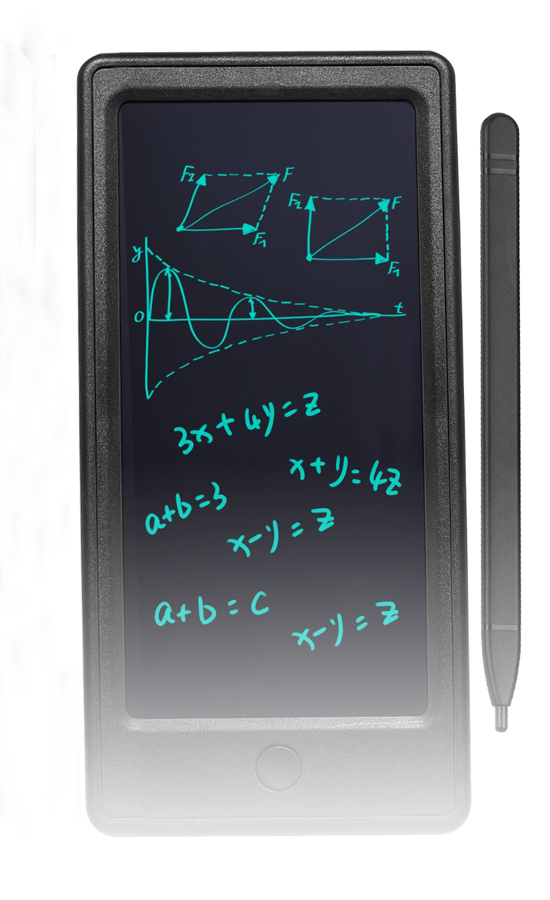 F₂ F
F₁
F₂ F
F₁
y
O t
3x+4y=z
x+y=4z
a+b=3
x-y=z
a+b=c
x-y=z